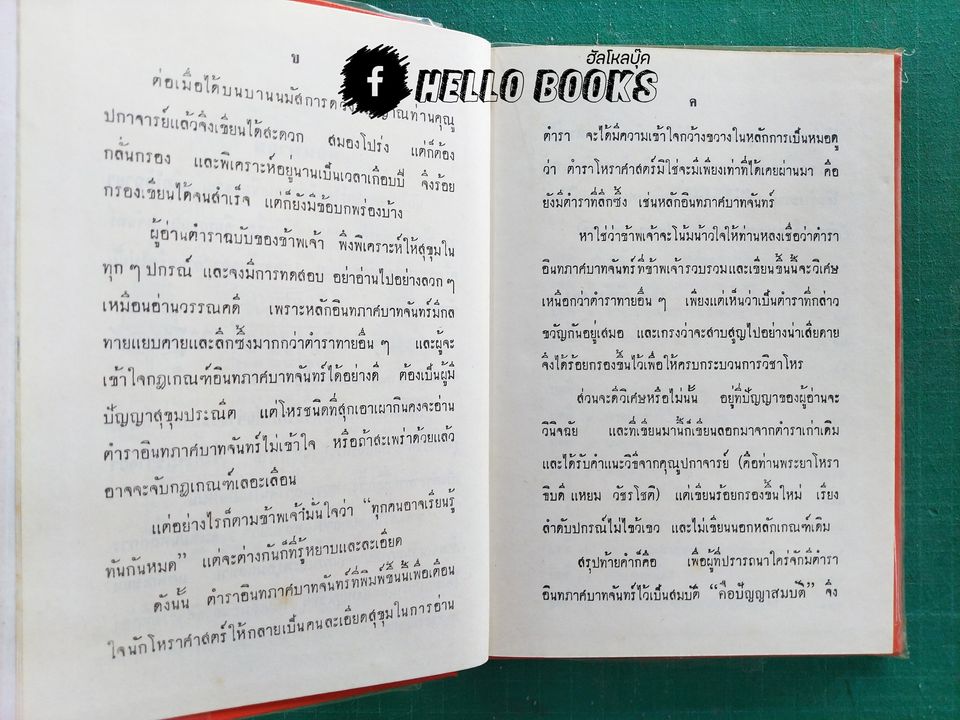 ฮัลโหลบุ๊ค
f HELLO BOOKS
ข
ต่อเมื่อได้บนบานนมัสการดวงวิญญาณท่านคุณู
ปกาจารย์แล้วจึงเขียนได้สะดวก สมองโปร่ง แต่ก็ต้อง
กลั่นกรอง และพิเคราะห์อยู่นานเป็นเวลาเกือบปี จึงร้อย
กรองเขียนได้จนสำเร็จ แต่ก็ยังมีข้อบกพร่องบ้าง
ผู้อ่านตำราฉบับของข้าพเจ้า พึงพิเคราะห์ให้สุขุมใน
ทุก ๆ ปกรณ์ และจงมีการทดสอบ อย่าอ่านไปอย่างลวก ๆ
เหมือนอ่านวรรณคดี เพราะหลักอินทภาศบาทจันทร์มีกล
ทายแยบคายและลึกซึ้งมากกว่าตำราทายอื่น ๆ และผู้จะ
เข้าใจกฎเกณฑ์อินทภาศบาทจันทร์ได้อย่างดี ต้องเป็นผู้มี
ปัญญาสุขุมประณีต แต่โหรชนิดที่สุกเอาเผากินคงจะอ่าน
ตำราอินทภาศบาทจันทร์ไม่เข้าใจ หรือถ้าสะเพร่าด้วยแล้ว
อาจจะจับกฎเกณฑ์เลอะเลือน
แต่อย่างไรก็ตามข้าพเจ้ามั่นใจว่า “ทุกคนอาจเรียนรู้
ทันกันหมด” แต่จะต่างกันก็ที่รู้หยาบและละเอียด
ดังนั้น ตำราอินทภาศบาทจันทร์ที่พิมพ์ขึ้นนี้เพื่อเตือน
ใจนักโหราศาสตร์ให้กลายเป็นคนละเอียดสุขุมในการอ่าน
ค
ตำรา จะได้มีความเข้าใจกว้างขวางในหลักการเป็นหมอดู
ว่า ตำราโหราศาสตร์มิใช่จะมีเพียงเท่าที่ได้เคยผ่านมา คือ
ยังมีตำราที่ลึกซึ้ง เช่นหลักอินทภาศบาทจันทร์
หาใช่ว่าข้าพเจ้าจะโน้มน้าวใจให้ท่านหลงเชื่อว่าตำรา
อินทภาศบาทจันทร์ที่ข้าพเจ้ารวบรวมและเขียนขึ้นนี้จะวิเศษ
เหนือกว่าตำราทายอื่น ๆ เพียงแต่เห็นว่าเป็นตำราที่กล่าว
ขวัญกันอยู่เสมอ และเกรงว่าจะสาบสูญไปอย่างน่าเสียดาย
จึงได้ร้อยกรองขึ้นไว้เพื่อให้ครบกระบวนการวิชาโหร
ส่วนจะดีวิเศษหรือไม่นั้น อยู่ที่ปัญญาของผู้อ่านจะ
วินิจฉัย และที่เขียนมานี้ก็เขียนลอกมาจากตำราเก่าเดิม
และได้รับคำแนะวิธีจากคุณูปกาจารย์ (คือท่านพระยาโหรา
ธิบดี แหยม วัชรโชติ) แต่เขียนร้อยกรองขึ้นใหม่ เรียง
ลำดับปกรณ์ไม่ไขว้เขว และไม่เขียนนอกหลักเกณฑ์เดิม
สรุปท้ายคำก็คือ เพื่อผู้ที่ปรารถนาใคร่จักมีตำรา
อินทภาศบาทจันทร์ไว้เป็นสมบัติ “คือปัญญาสมบัติ” จึง